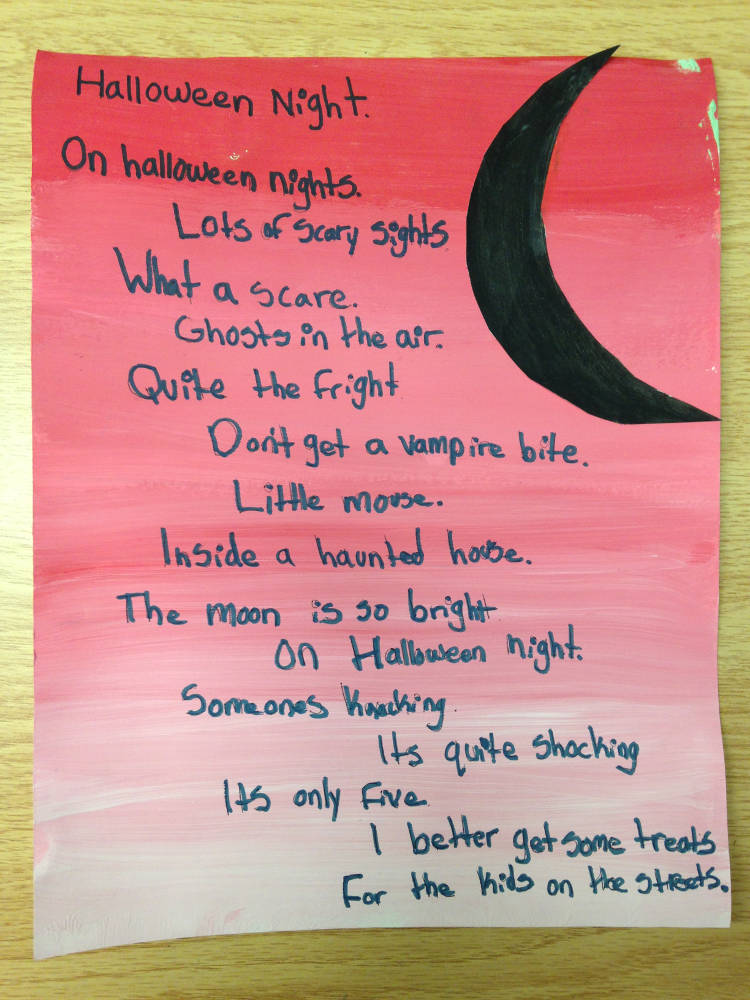 Halloween Night.
On halloween nights.
Lots of scary sights
What a scare.
Ghosts in the air.
Quite the fright
Don't get a vampire bite.
Little mouse.
Inside a haunted house.
The moon is so bright
On Halloween night.
Someones knocking.
Its quite shocking
Its only five.
I better get some treats
For the kids on the streets.